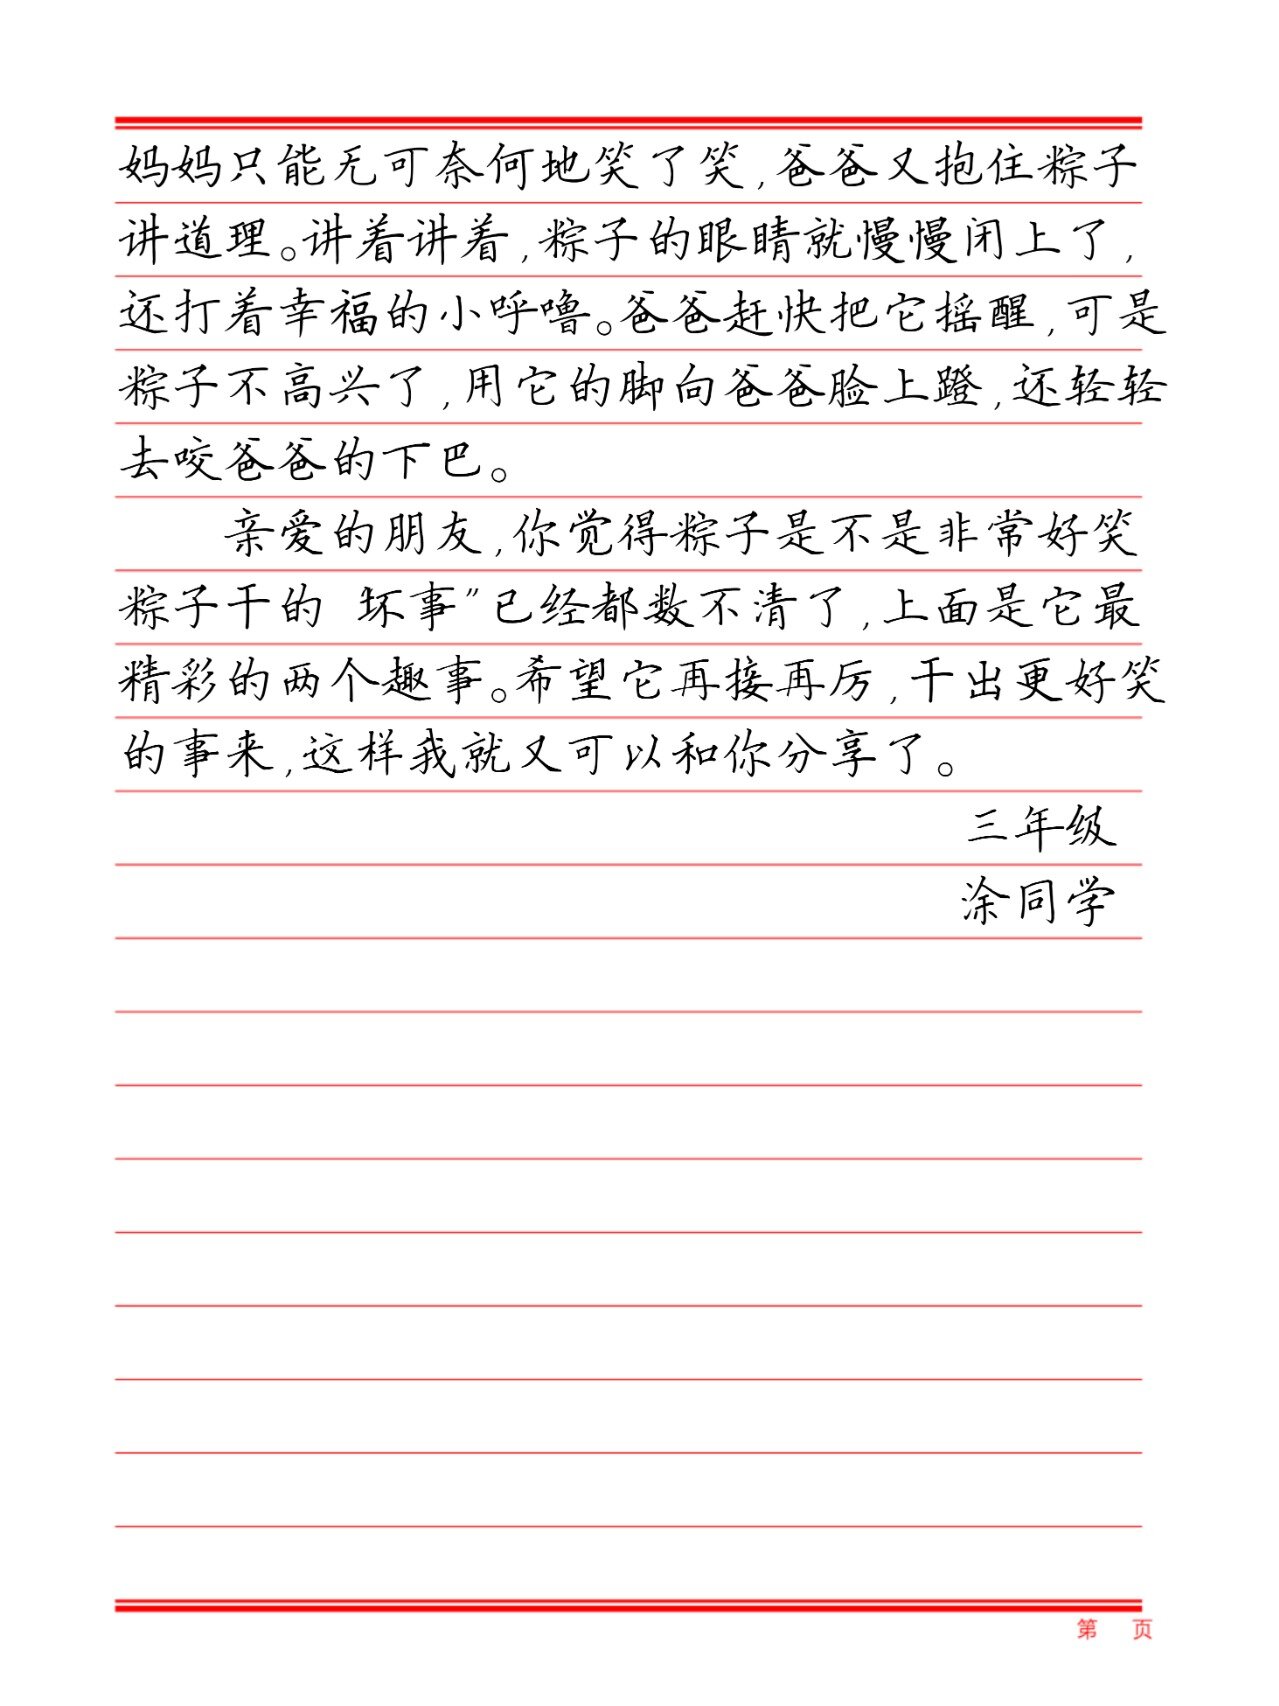 妈妈只能无可奈何地笑了笑,爸爸又抱住粽子
讲道理。讲着讲着,粽子的眼睛就慢慢闭上了,
还打着幸福的小呼噜。爸爸赶快把它摇醒,可是
粽子不高兴了,用它的脚向爸爸脸上蹬,还轻轻
去咬爸爸的下巴。
亲爱的朋友,你觉得粽子是不是非常好笑
粽子干的“坏事”已经都数不清了,上面是它最
精彩的两个趣事。希望它再接再厉,干出更好笑
的事来,这样我就又可以和你分享了。
三年级
涂同学
第 页